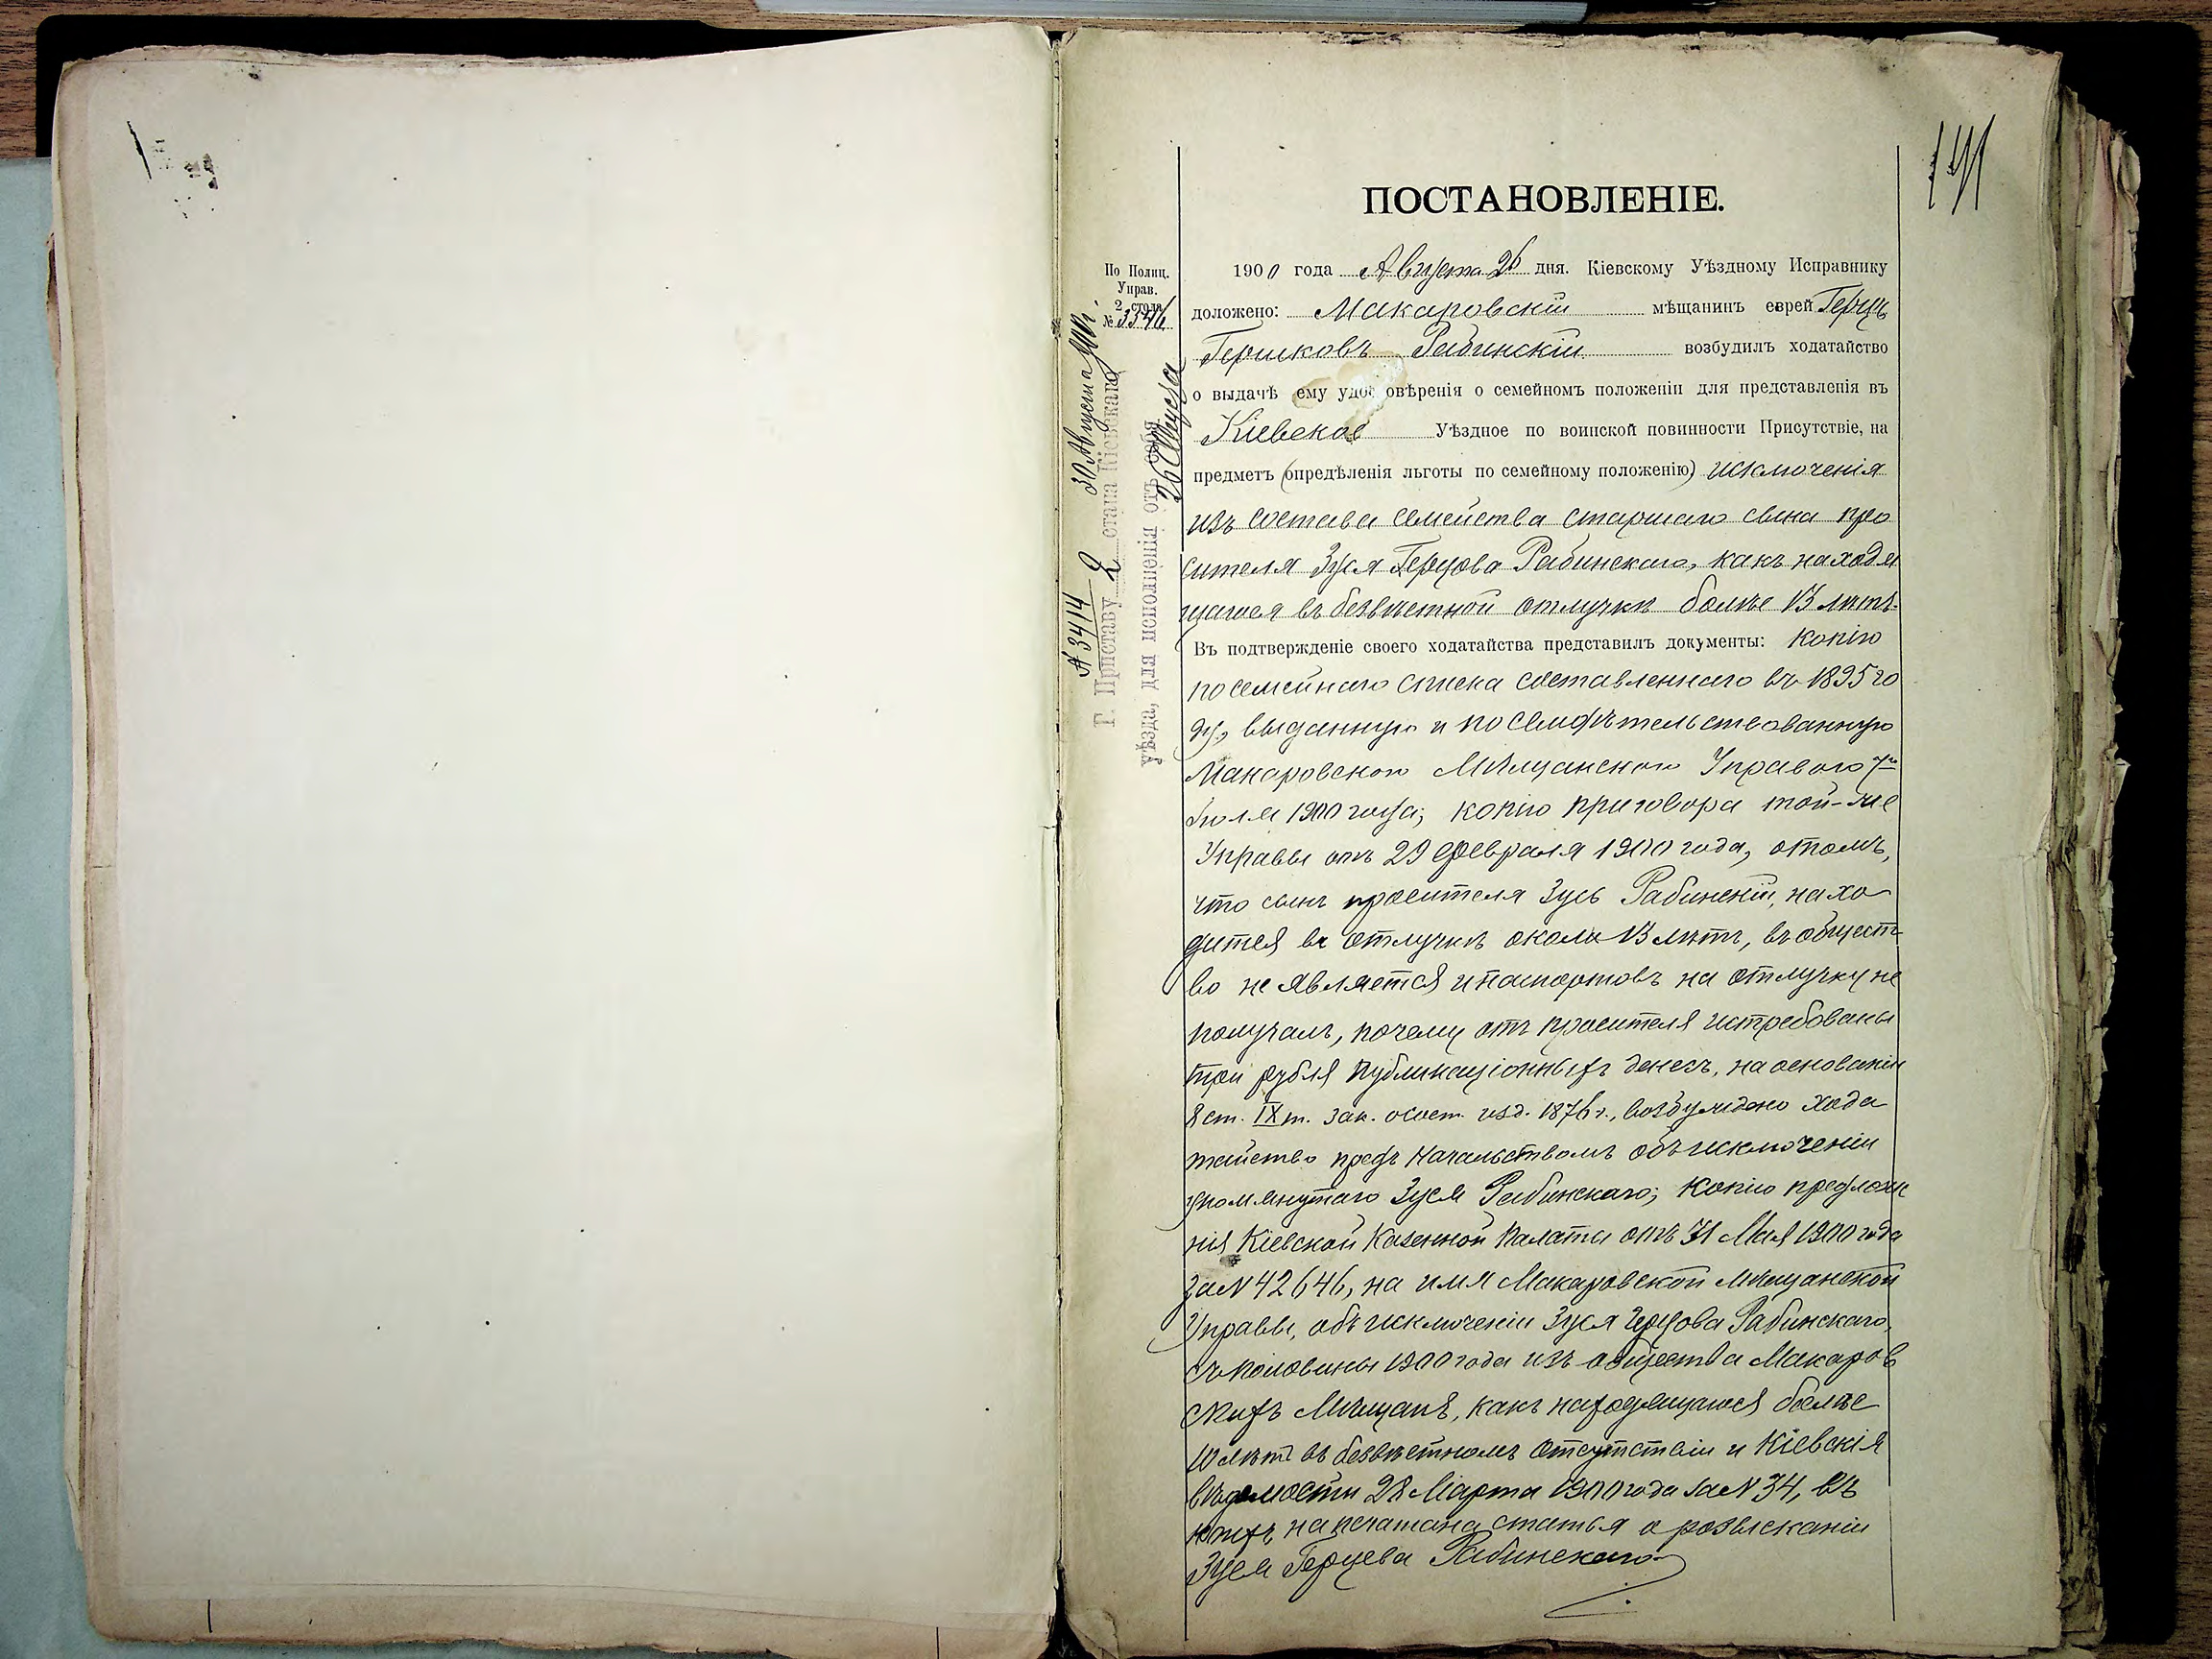 141
ПОСТАНОВЛЕНІЕ.
По Полиц.
Управ.
2 стола
№ 3346
1900 года Августа 26 дня. Кіевскому Уѣздному Исправнику
доложено: Макаровскій мѣщанинъ еврей Герцъ
Гершковъ Рабинскій возбудилъ ходатайство
о выдачѣ ему удостовѣренія о семейномъ положеніи для представленія въ
Кіевское Уѣздное по воинской повинности Присутствіе, на
предметъ (опредѣленія льготы по семейному положенію) исключенія
изъ состава семейства старшаго сына про
сителя Зуся Герцова Рабинскаго, какъ находя
щагося въ безвѣстной отлучкѣ болѣе 13 лѣтъ.
Въ подтвержденіе своего ходатайства представилъ документы: копію
посемейнаго списка составленнаго въ 1895 го
ду, выданную и
Макаровскою Мѣщанскою Управою 7го
Іюля 1900 года; копію приговора той-же
Управы отъ 29 Февраля 1900 года, о томъ,
что сынъ просителя Зусь Рабинскій, нахо
дится въ отлучкѣ около 13 лѣтъ, въ общест
во не является и паспортовъ на отлучку не
получалъ, почему отъ просителя истребованы
три рубля публикаціонныхъ денегъ, на основаніи
8 ст. IX т. зак. о сост. изд. 1876 г., возбуждено хода
тайство предъ Начальствомъ объ исключеніи
упомянутаго Зуся Рабинскаго; копію предложе
нія Кіевской Казенной Палаты отъ 31 Мая 1900 года
за N 42646, на имя Макаровской Мѣщанской
Управы, объ исключеніи Зуся Герцова Рабинскаго,
съ половины 1900 года изъ общества Макаров
скихъ Мѣщанъ, какъ находящагося болѣе
10 лѣтъ въ безвѣстномъ отсутствіи и Кіевскія
вѣдомости 28 Марта 1900 года за N 34, въ
коихъ напечатана статья о розысканіи
Зуся Герцева Рабинскаго
N 3414 30 Августа
Г. Приставу 2 стана Кіевскаго
уѣзда, для исполненія отъ
26 Августа